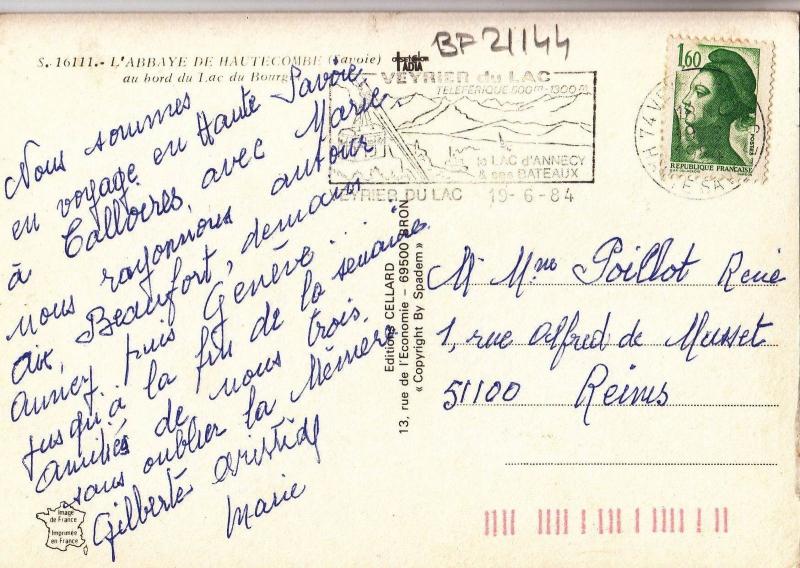 BF 21144
S. 16111. - L'ABBAYE DE HAUTECOMBE (Savoie)
au bord du Lac du Bourget
VEYRIER du LAC
TÉLÉFERIQUE 500m - 1300m
le LAC d'ANNECY
& ses BATEAUX
VEYRIER DU LAC 19-6-84
1,60
REPUBLIQUE FRANÇAISE
Nous sommes
en voyage en Haute Savoie
à Talloires, avec Marie
nous rayonnons autour
Aix, Beaufort, demain
Annecy puis Genève...
jusqu'à la fin de la semaine.
amitiés de nous trois.
sans oublier la Mémère
Gilberte Aristide
Marie
Editions CELLARD
13, rue de l'Economie - 69500 BRON
« Copyright By Spadem »
M Mme Poillot René
1, rue Alfred de Musset
51100 Reims
Image
de France
Imprimée
en France